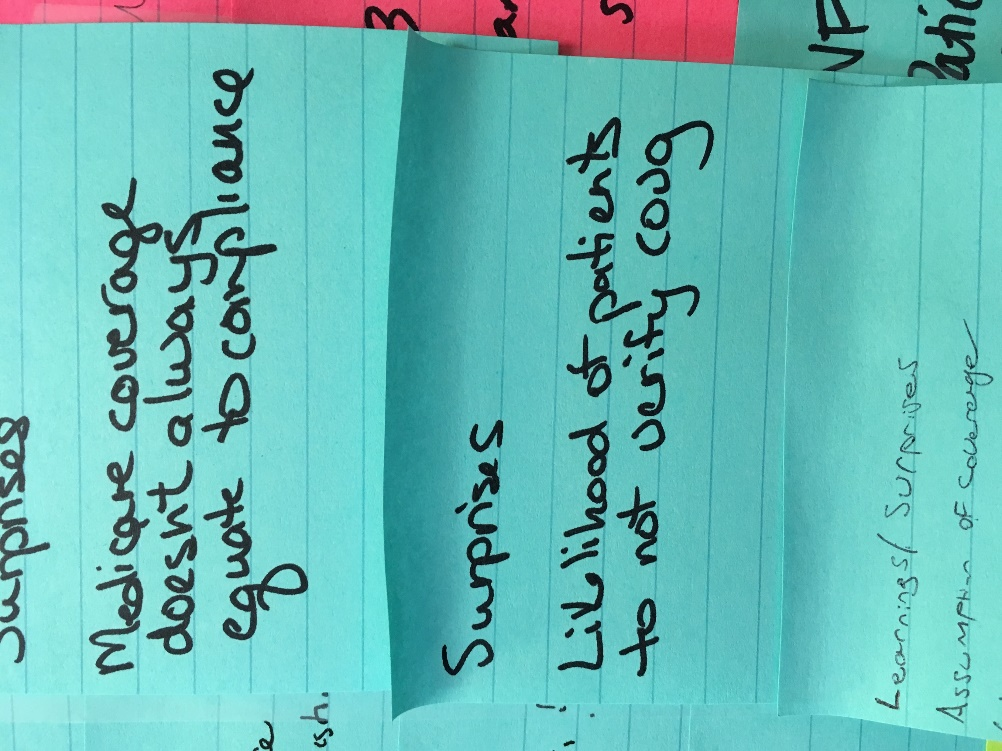 Surprises
Medicare coverage
doesn't always
equate to compliance
Surprises
Liklihood of patients
to not verify covg
Learnings/ Surprises
Assumption of Coverage